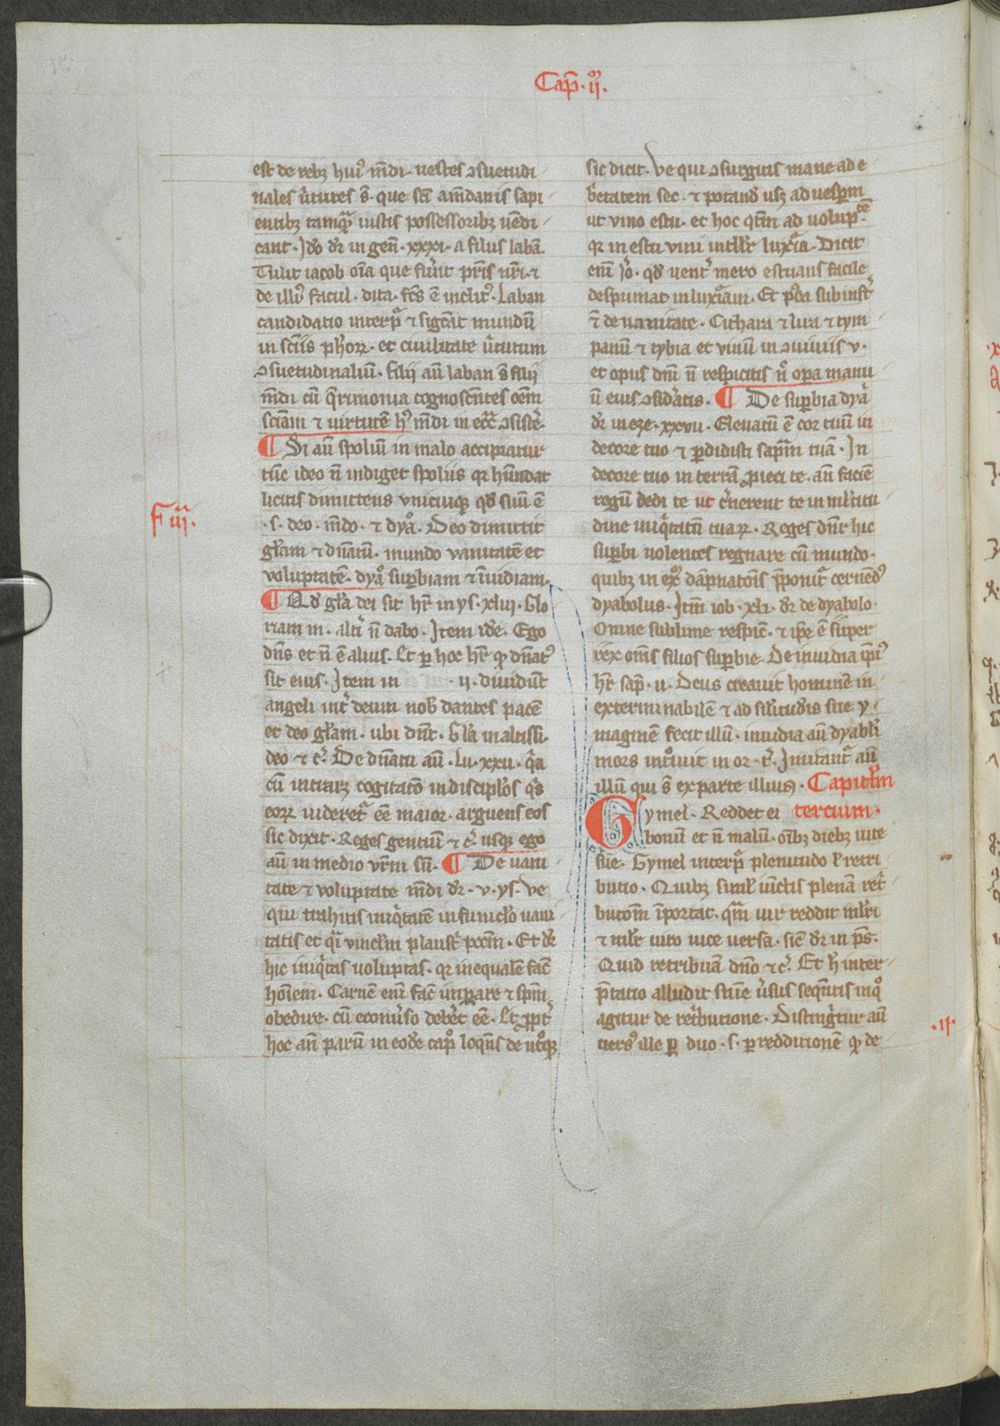 Cap̃. ijᵐ.
est de rebꝫ huiꝰ mdi. uestes ꝯsuetudi
nales ũtutes s̃. que sẽt amdanis sapi
entibꝫ tamqᷓ iustis possessoribꝫ uẽdi
cant. Iᵭo dr̃ in geñ. xxxi. a filiis labã.
Tulit iacob oĩa que fũut pr̃is nr̃i. ⁊
de illiꝰ facul. dita. fc̃s ẽ inclitꝰ. Laban
candidatio interp̃ ⁊ sigcãt mundũ
in sciis ph̃orꝝ. et ciuilitate ũtutum
ꝯsuetudinaliũ. filii aũ laban s̃ filij
mdi cũ q̃rimonia cognoscẽtes oẽm
sciam ⁊ uirtutẽ hꝰ mdi in ecc̃ ꝯsistẽ.
¶ Si aũ spoliũ in malo accipiatur
tũc ideo ñ indiget spoliis qr hũndat
licitis dimittens vnicuiqꝫ qđ suũ ẽ
.s. deo. mdo. ⁊ dyaᵒ. Deo dimittit
gl̃am ⁊ dñatũ. mundo vanitatẽ et
voluptatẽ. dyaᵒ supbiam ⁊ ĩuidiam.
F iij.
¶ Qđ gl̃a dei sit hr̃ in ys. xlii. Glo
riam m. alt̃i ñ dabo. Item iđe. Ego
dñs et ñ ẽ alius. Et p̱ hoc hr̃ qꝫ dñatꝰ
sit eius. Item in ij. diuidũt
angeli int̃ deum nob̃ dantes pacẽ
et deo gl̃am. ubi dñt. Gl̃a in altissi.
deo ⁊ c̃. De dñatu aũ. lu. xxii. q̃a
cũ intrarꝫ cogitatõ in discipl̃os q̃s
eorꝝ uideretᷣ ẽe maior. arguens eos
sic dixit. Reges gentiũ ⁊ c̃ usqꝫ ego
aũ in medio vr̃m sũ. ¶ De uani
tate ⁊ voluptate mdi dr̃. v. ys. Ve
qui trahitis iniq̃tatẽ in funicl̃o uani
tatis et q̃i vincl̃m plaustᷓ pc̃cm. Et dr̃
hic iniq̃tas uoluptas. qr inequalẽ facĩt
hoĩem. Carnẽ eni facĩt imp̱are ⁊ sp̃m
obedire. cũ econũso deb̃et ẽe. Et ꝓpt̃
hoc añ parũ in eođe cap̃ᵒ loqñs de ut̃qꝫ
sic dicit. Ve qui ꝯsurgitis mane ad e
b̃etatem sec. ⁊ potanđ usqꝫ ad uesp̃am
ut vino estu. et hoc qᷓtũ ad volupᵗᵉ.
qr in estu vini intllr̃ luxᷓia. Dicit
eni Ieᵒ. qđ uent̃ mero estuans facile
despumat in luxᷓiam. Et p̱ea subinfert̃
⁊ de uanitate. Cithara ⁊ lira ⁊ tym
panũ ⁊ tybia et vinũ in ꝯuiuiis v.
et opus dñi ñ respicitis nᶜ opa manu
ũ eius ꝯsid̃atis. ¶ De supbia dyaᵒ
dr̃ in eze. xxvii. Eleuatũ ẽ cor tuũ in
decore tuo ⁊ p̱didisti sapĩam tuã. In
decore tuo in terrã ꝓieci te. añ faciẽ
regũ dedi te ut c̃nerent te in ml̃titu
dine iniq̃tatũ tuaꝝ. Reges dñr̃ hic
supbi uolentes regnare cũ mundo.
quibꝫ in exᵒ dãpnatõis p̃ponitᷣ cernẽdꝰ
dyabolus. Itm iob. xli. dr̃ de dyabolo.
Omne sublime respic̃. ⁊ ip̃e ẽ super
rex oms̃ filios supbie. De inuidia ip̃iꝰ
hr̃ sap̃. ii. Deus creauit hominẽ in
exterminabilẽ ⁊ ad sil̃itudĩs sue y
maginem fecit illũ. inuidia aũ dyabl̃i
mors int̃ouit in or. t̃. Imitantᷣ aũ
illũ qui s̃ ex parte illius. Capitlm̃
tercium.
Gymel. Reddet ei
bonũ et ñ malũ. oĩbꝫ diebꝫ uite
sue. Gymel interp̃ plenitudo l̃ retri
butio. Quibꝫ simĩl iũctis plenã ret̃
butoẽm ĩportat. qᷓm uir reddit ml̃ri
⁊ ml̃r uiro uice uersa. sic̃ dr̃ in pˢ.
Quid retribuã dño ⁊ c̃. Et h̃ inter
p̃tatio alludit sñie ũsus seqñtis in qᵒ
agitur de ret̃butione. Distingᷣtur aũ
.ij.
uersꝰ ille p̱ duo. s. p̱ redditionẽ qꝫ de